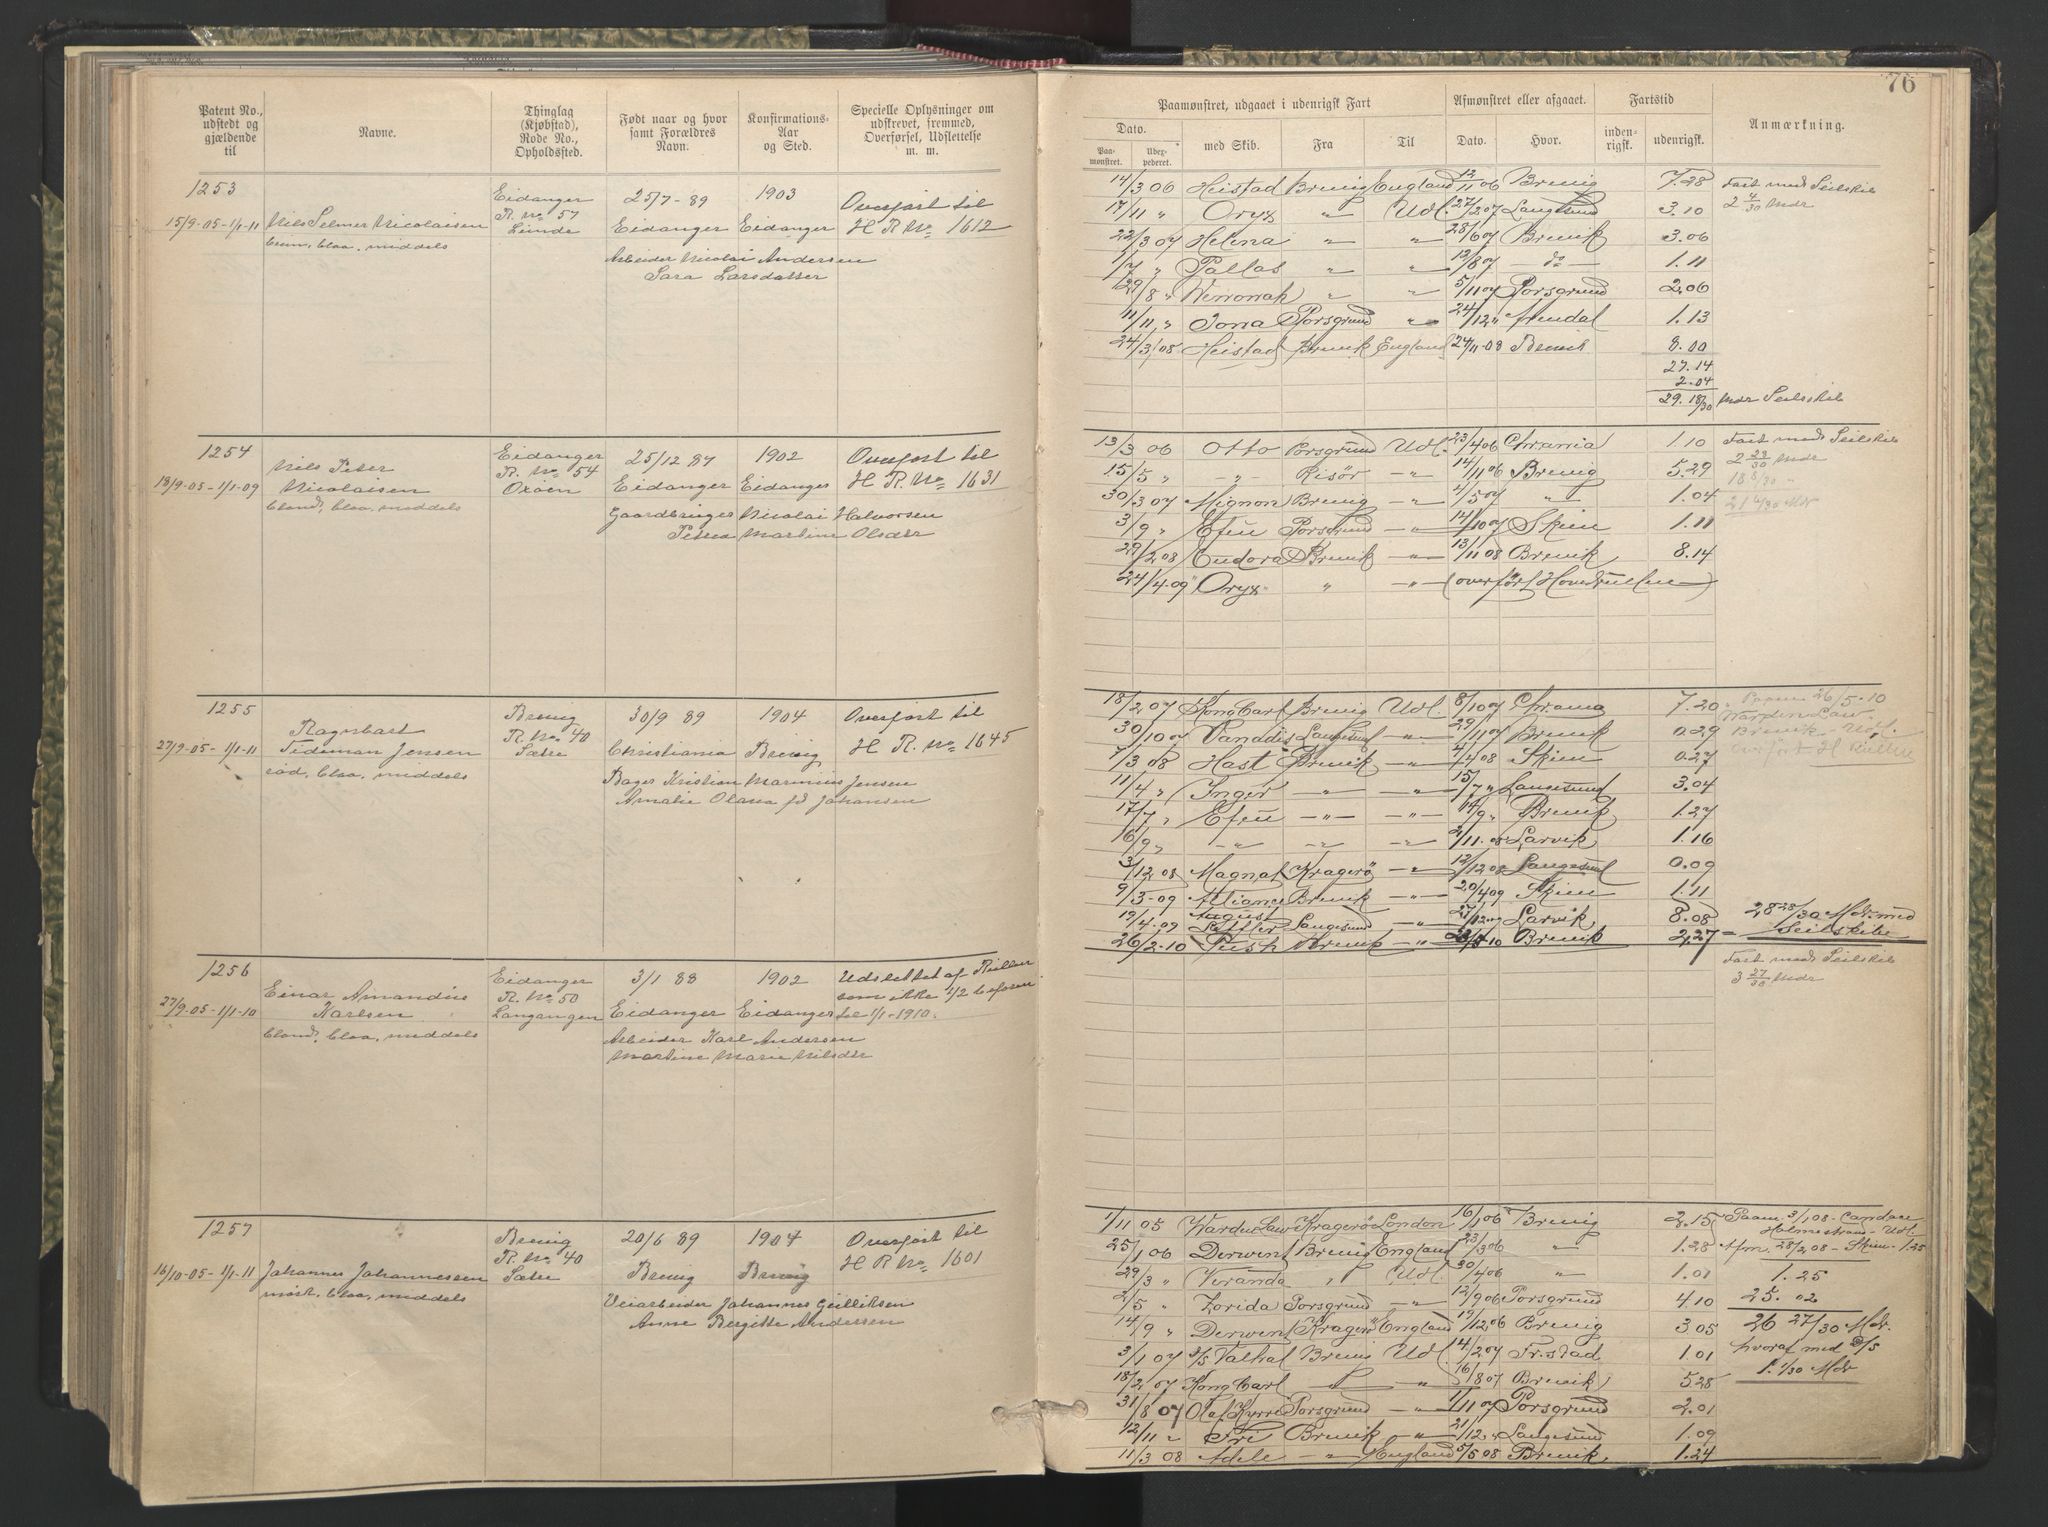 76
Patent No., udstedt og gjældende til
Navne.
Thinglag (Kjøbstad), Rode No., Opholdssted.
Født naar og hvor samt Forældres Navn.
Konfirmations-Aar og Sted.
Specielle Oplysninger om udskrevet, fremmed, Overførsel, Udslettelse m. m.
Paamønstret, udgaaet i udenrigsk Fart
Afmønstret eller afgaaet.
Fartstid
Anmærkning.
Dato.
Paa-mønstret.
Udex-pederet.
med Skib.
Fra
Til
Dato.
Hvor.
inden-rigsk.
udenrigsk.
1253
15/9-05-1/1-11
Nils Selmer Nicolaisen
blaa, middels
Eidanger
R. No 57
Linde
25/7-89
Eidanger
1903
Eidanger
Arbeider Nicolai Andersen
Sara Larsdatter
Overført til
H R. No 1612
14/3 06 Heistad Brevig England 12/11 06 Brevig 7.28 Fart med Seilskib
17/11 " Oryx " Udl. 27/2 07 Langesund 3.10 2 4/30 Mdr
22/3 07 Helena " " 28/6 07 Brevik 3.06
1/7 " Pallas " " 12/8 07 do 1.11
29/8 " Wenonah " " 5/11 07 Porsgrund 2.06
11/11 " Iona Porsgrund " 24/12 " Arendal 1.13
24/3 08 Heistad Brevik England 24/11-08 Brevik 8.00
27.14
2.04
29.18/30 Mdr Seilskib
1254
18/9-05-1/1-09
Nils Peter
Nicolaisen
blond, blaa, middels
Eidanger
R. No 54
Oxøen
25/12 87
Eidanger
1902
Eidanger
Gaardbruger Nicolai Halvorsen
Petrea Martine Olsdtr
Overført til
H R. No 1631
13/3 06 Otto Porsgrund Udl. 23/4 06 Chrania 1.10 Fart med Seilskib
15/5 " " Risør " 14/11 06 Brevig 5.29 2 23/30 Mdr
30/3 07 Mignon Brevig " 4/5 07 " 1.04 21 6/30 Mdr
3/9 " Efeu Porsgrund " 14/10 07 Skien 1.11
29/2 08 Eudora Brevik " 13/11 08 Brevik 8.14
24/4-09 Oryx " " (overført Hovedrullen)
1255
27/9-05-1/1-11
Ragnbart
Tideman Jensen
rød, blaa, middels
Brevig
R. No 40
Sætre
30/9 89
Christiania
1904
Brevig
Bager Kristian Marinius Jensen
Amalie Olava fd Johansen
Overført til
H R. No 1645
18/2 07 Kong Carl Brevig Udl. 8/10 07 Chrania 7.20 Paam 26/5-10
30/10 07 Vanadis Langesund " 29/11 07 Brevik 0.29 Warden Law
7/3 08 Hast Brevik " 4/4 08 Skien 0.27 Brevik - Udl.
Overført H Rullen
11/4 " Inger " " 15/7 " Langesund 3.04
17/7 " Efeu " " 14/9 " Brevik 1.27
16/9 " " " " 2/11-08 Larvik 1.16
3/12 08 Magnat Kragerø " 12/12 08 Langesund 0.09
9/3-09 Alliance Brevik " 20/4 09 Skien 1.11
19/4-09 August Leffler Langesund " 27/12 09 Larvik 8.08 28 28/30 Mdr med
26/2-10 Push Brevik " 23/5-10 Brevik 2.27 Seilskibe
1256
27/9-05-1/1-10
Einar Amandus
Karlsen
blond, blaa, middels
Eidanger
R. No 50
Langangen
3/1 88
Eidanger
1902
Eidanger
Arbeider Karl Andersen
Martine Marie Nilsdtr
Udslettet af Rullen
som ikke 1/2 befaren
til 1/1-1910.
Fart med Seilskib
3 27/30 Mdr
1257
16/10-05-1/1-11
Johannes Johannessen
mørk, blaa, middels
Brevig
R. No 40
Sætre
20/6 89
Brevig
1904
Brevig
Veiarbeider Johannes Gulliksen
Anne Bergitte Andersen
Overført til
H R No 1601
1/11 05 Warden Law Kragerø London 16/1 06 Brevig 2.15 Paam. 3/1 08 - Candace
Holmestrand Udl.
25/1 06 Derwent Brevig England 23/3 06 " 1.28 Afm. 28/2 08 - Skien - 1.25
29/3 " Veranda " Udl. 30/4 06 " 1.01 1.25
2/5 " Zorida Porsgrund " 12/9 06 Porsgrund 4.10 25.02
14/9 " Derwent Kragerø England 19/12 06 Brevig 3.05 26 27/30 Mdr.
3/1 07 D/S Valhal Brevig Udl. 14/2 07 Fr.stad 1.01 hvoraf med D/S
18/2 07 Kong Carl " " 16/8 07 Brevik 5.28 1. 1/30 Mdr
31/8 07 Olaf Kyrre Porsgrund " 1/11 07 Porsgrund 2.01
12/11 " Fri Brevik " 21/12 " Langesund 1.09
11/3 08 Adele " England 5/5 08 Brevik 1.24